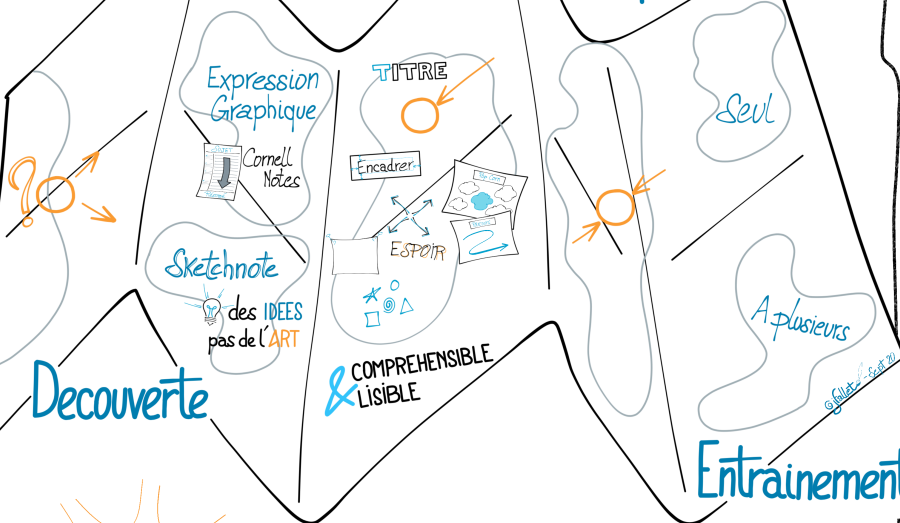 ?
Expression
Graphique
Cornell
Notes
Sketchnote
des IDEES
pas de l'ART
Decouverte
TITRE
Encadrer
ESPOIR
& COMPREHENSIBLE
LISIBLE
Seul
A plusieurs
Entrainement